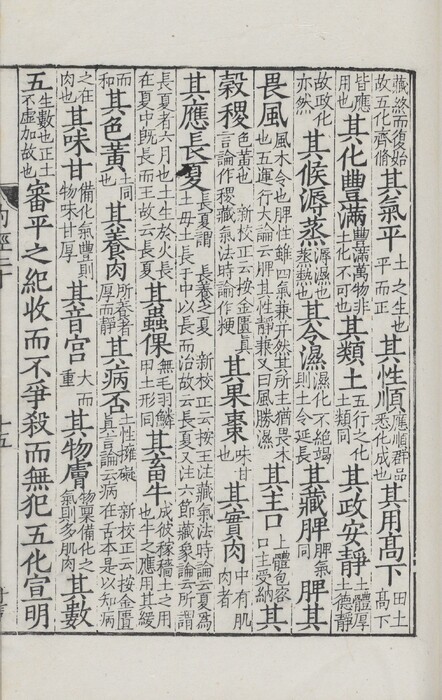 藏終而復始故五化齊脩其氣平土之生也平而正其性順應順群品悉化成也其用高下田土高下
皆應用也其化豐滿豐滿萬物非土化不可也其類土五行之化土類同其政安靜土體厚土德靜
故政化亦然其候溽蒸溽濕也蒸熱也其令濕濕化不絶竭則土令延長其藏脾脾氣同脾其
畏風風木令也脾性雖四氣兼并然其所主猶畏木也五運行大論云脾其性靜兼又曰風勝濕其主口土體包容口主受納其
穀稷色黄也新校正云按金匱真言論作稷藏氣法時論作粳其果棗味甘也其實肉中有肌肉者
其應長夏長夏謂長養之夏新校正云按王注藏氣法時論云夏為土母土長于中以長而治故云長夏又注六節藏象論云所謂
長夏者六月也土生於火長在夏中既長而王故云長夏其蟲倮無毛羽鱗甲土形同其畜牛成彼稼穡土之用也牛之應用其緩
而和其色黄土同也其養肉所養者厚而靜其病否土性擁礙新校正云按金匱真言論云病在舌本是以知病
之在肉也其味甘備化氣豐則物味甘厚其音宫大而重其物膚物稟備化之氣則多肌肉其數
五生數也正土不虛加故也審平之紀收而不爭殺而無犯五化宣明